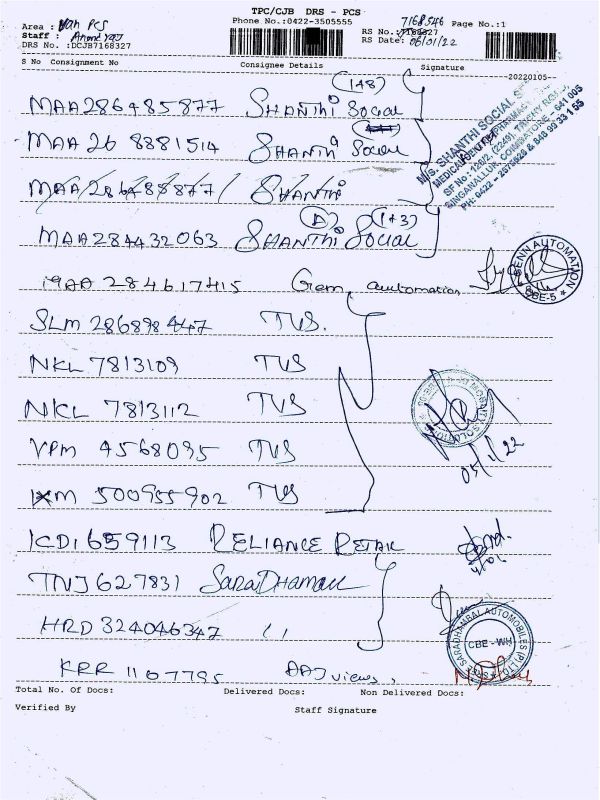 TPC/CJB DRS - PCS
Area : Van PCS
Phone No.:0422-3505555
7168546 Page No.:1
Staff : Anand raj
RS No.:7168327
DRS No. :DCJB7168327
RS Date: 06/01/22
S No Consignment No Consignee Details Signature
20220105-
(1+8)
MAA286485877 SHANTHI Social
MAA 26 8881514 SHANTHI Social
MAA/286488877/ SHANTHI
(A) (1+3)
MAA284432063 SHANTHI Social
M/s. SHANTHI SOCIAL
MEDICAL CENTRE PHARMACY
SF No : 126/2, (22/49), TRICHY ROAD
SINGANALLUR, COIMBATORE - 641 005
MAA 284617415 Gem automation
SENN AUTOMATION
CBE-5
SLM 286898447 TVS.
NKL 7813109 TVS
NKL 7813112 TVS
VPM 4568095 TVS
IXM 500955902 TVS
05/1/22
ICD1659113 RELIANCE RETAIL
TNJ 627831 SaraDhamau
HRD 324046347 ,,
SRI SARADHAMBAL AUTOMOBILES (P) LTD
CBE - WH
KRR 1107795 AAJ views,
Total No. Of Docs: Delivered Docs: Non Delivered Docs:
Verified By Staff Signature